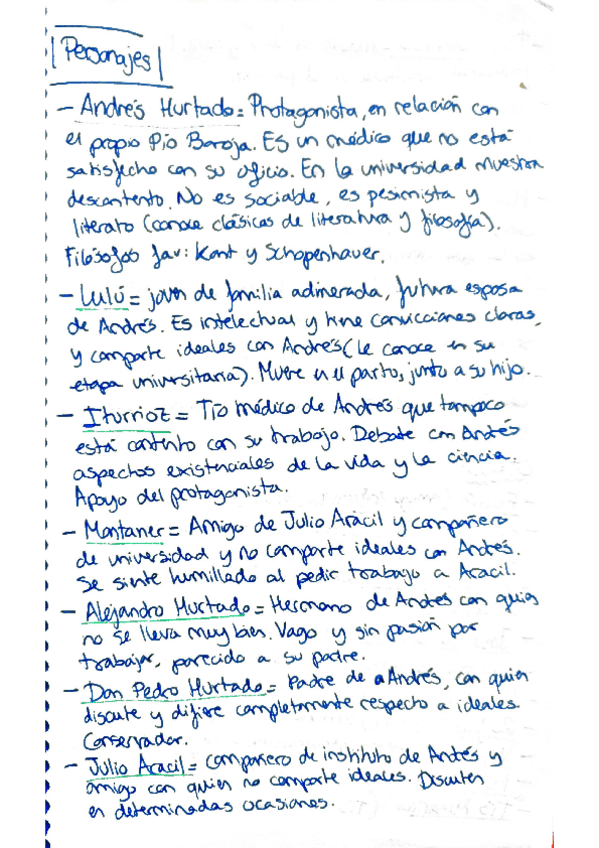 Personajes
- Andrés Hurtado = Protagonista, en relación con
el propio Pío Baroja. Es un médico que no está
satisfecho con su oficio. En la universidad muestra
descontento. No es sociable, es pesimista y
literato (conoce clásicos de literatura y filosofía).
Filósofos fav: Kant y Schopenhauer.
- Lulú = joven de familia adinerada, futura esposa
de Andrés. Es intelectual y tiene convicciones claras,
y comparte ideales con Andrés (le conoce en su
etapa universitaria). Muere en el parto, junto a su hijo.
- Iturrioz = Tío médico de Andrés que tampoco
está contento con su trabajo. Debate con Andrés
aspectos existenciales de la vida y la ciencia.
Apoyo del protagonista.
- Montaner = Amigo de Julio Aracil y compañero
de universidad y no comparte ideales con Andrés.
Se siente humillado al pedir trabajo a Aracil.
- Alejandro Hurtado = Hermano de Andrés con quien
no se lleva muy bien. Vago y sin pasión por
trabajar, parecido a su padre.
- Don Pedro Hurtado = Padre de Andrés, con quien
discute y difiere completamente respecto a ideales.
Conservador.
- Julio Aracil = compañero de instituto de Andrés y
amigo con quien no comparte ideales. Discuten
en determinadas ocasiones.